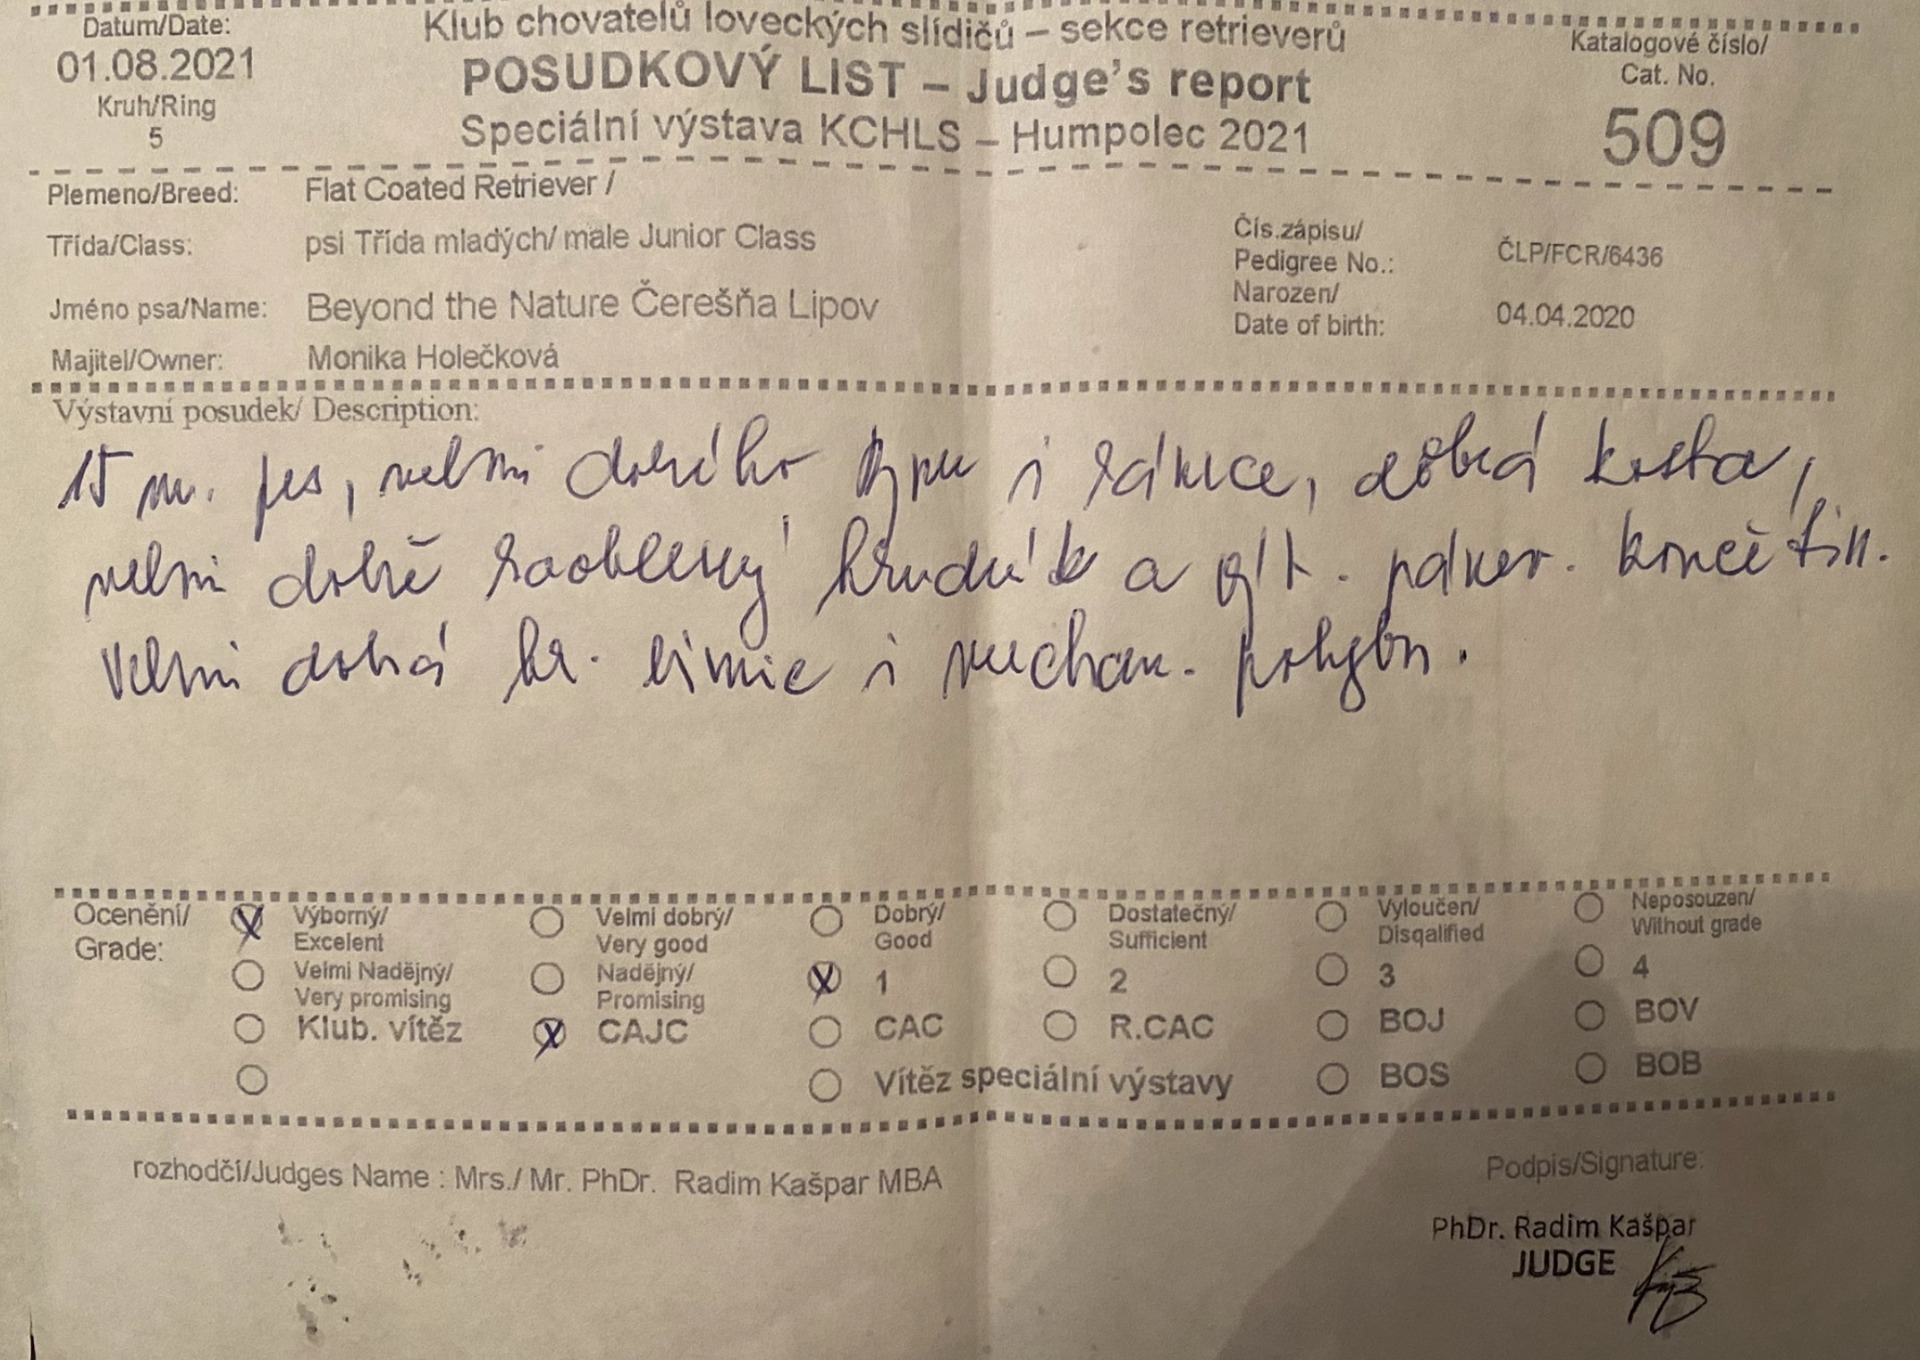 Datum/Date:
01.08.2021
Kruh/Ring
5
Klub chovatelů loveckých slídičů – sekce retrieverů
POSUDKOVÝ LIST – Judge's report
Speciální výstava KCHLS – Humpolec 2021
Katalogové číslo/
Cat. No.
509
Plemeno/Breed: Flat Coated Retriever /
Třída/Class: psi Třída mladých/ male Junior Class
Jméno psa/Name: Beyond the Nature Čerešňa Lipov
Majitel/Owner: Monika Holečková
Čís.zápisu/
Pedigree No.: ČLP/FCR/6436
Narozen/
Date of birth: 04.04.2020
Výstavní posudek/ Description:
15 m. pes, velmi dobrého typu i rámce, dobrá kostra,
velmi dobře zaoblený hrudník a končetin.
Velmi dobrá hr. linie i mechan. pohybu.
Ocenění/
Grade:
X Výborný/
Excelent
Velmi dobrý/
Very good
Dobrý/
Good
Dostatečný/
Sufficient
Vyloučen/
Disqalified
Neposouzen/
Without grade
Velmi Nadějný/
Very promising
Nadějný/
Promising
X 1
2
3
4
Klub. vítěz
X CAJC
CAC
R.CAC
BOJ
BOV
Vítěz speciální výstavy
BOS
BOB
rozhodčí/Judges Name : Mrs./ Mr. PhDr. Radim Kašpar MBA
Podpis/Signature:
PhDr. Radim Kašpar
JUDGE